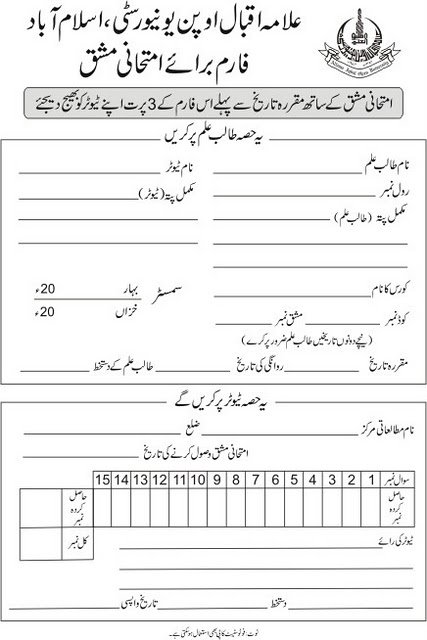 علامہ اقبال اوپن یونیورسٹی، اسلام آباد
فارم برائے امتحانی مشق
امتحانی مشق کے ساتھ مقررہ تاریخ سے پہلے اس فارم کے 3 پرت اپنے ٹیوٹر کو بھیج دیجئے
یہ حصہ طالب علم پر کریں
نام طالب علم نام ٹیوٹر
رول نمبر مکمل پتہ (ٹیوٹر)
مکمل پتہ (طالب علم)
کورس کا نام سمسٹر بہار 20ء
خزاں 20ء
کوڈ نمبر مشق نمبر
(نیچے دونوں تاریخیں طالب علم ضرور پر کرے)
مقررہ تاریخ روانگی کی تاریخ طالب علم کے دستخط
یہ حصہ ٹیوٹر پر کریں گے
نام مطالعاتی مرکز ضلع
امتحانی مشق وصول کرنے کی تاریخ
سوال نمبر 1 2 3 4 5 6 7 8 9 10 11 12 13 14 15
حاصل کردہ نمبر حاصل کردہ نمبر
کل نمبر
ٹیوٹر کی رائے
دستخط تاریخ واپسی
نوٹ: فوٹو سٹیٹ کاپی بھی استعمال ہو سکتی ہے۔